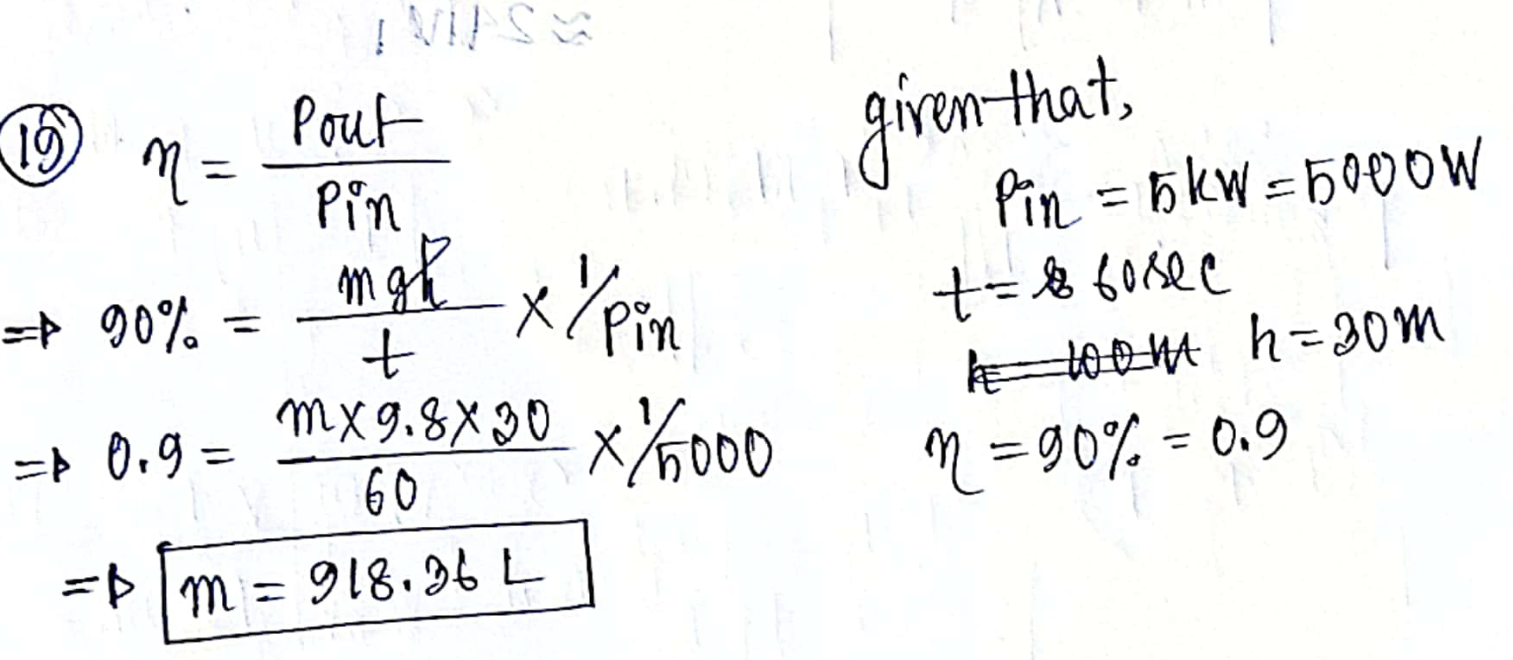 19 η = Pout / Pin
⇒ 90% = mgh / t × 1/Pin
⇒ 0.9 = m×9.8×30 / 60 × 1/5000
⇒ m = 918.36 L
given that,
Pin = 5kW = 5000W
t = 60sec
h = 100m h = 30m
η = 90% = 0.9